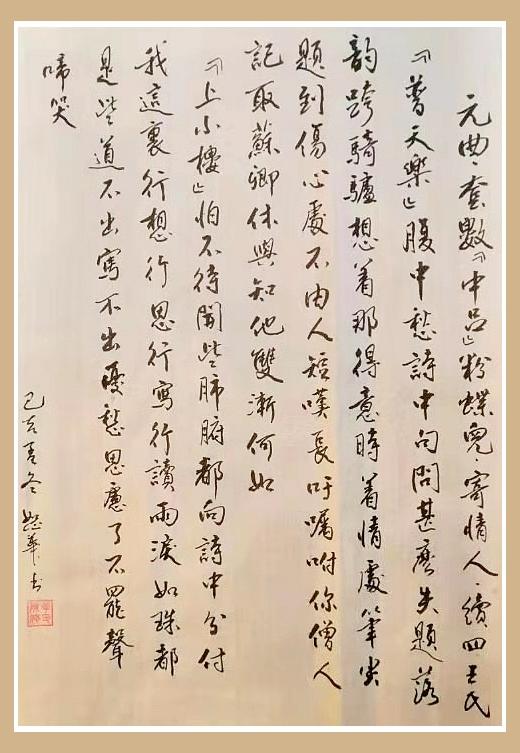 元曲·套數『中吕』粉蝶兒·寄情人·續四王氏
『普天樂』腹中愁詩中句問甚麽失題落
韵跨騎驢想着那得意時着情處筆尖
題到傷心處不由人短嘆長吁囑咐你僧人
記取蘇卿休與知他雙漸何如
『上小樓』怕不待開些肺腑都向詩中分付
我這裏行想行思行寫行讀雨淚如珠都
是些道不出寫不出憂愁思慮了不罷聲
啼哭
己亥孟冬華书